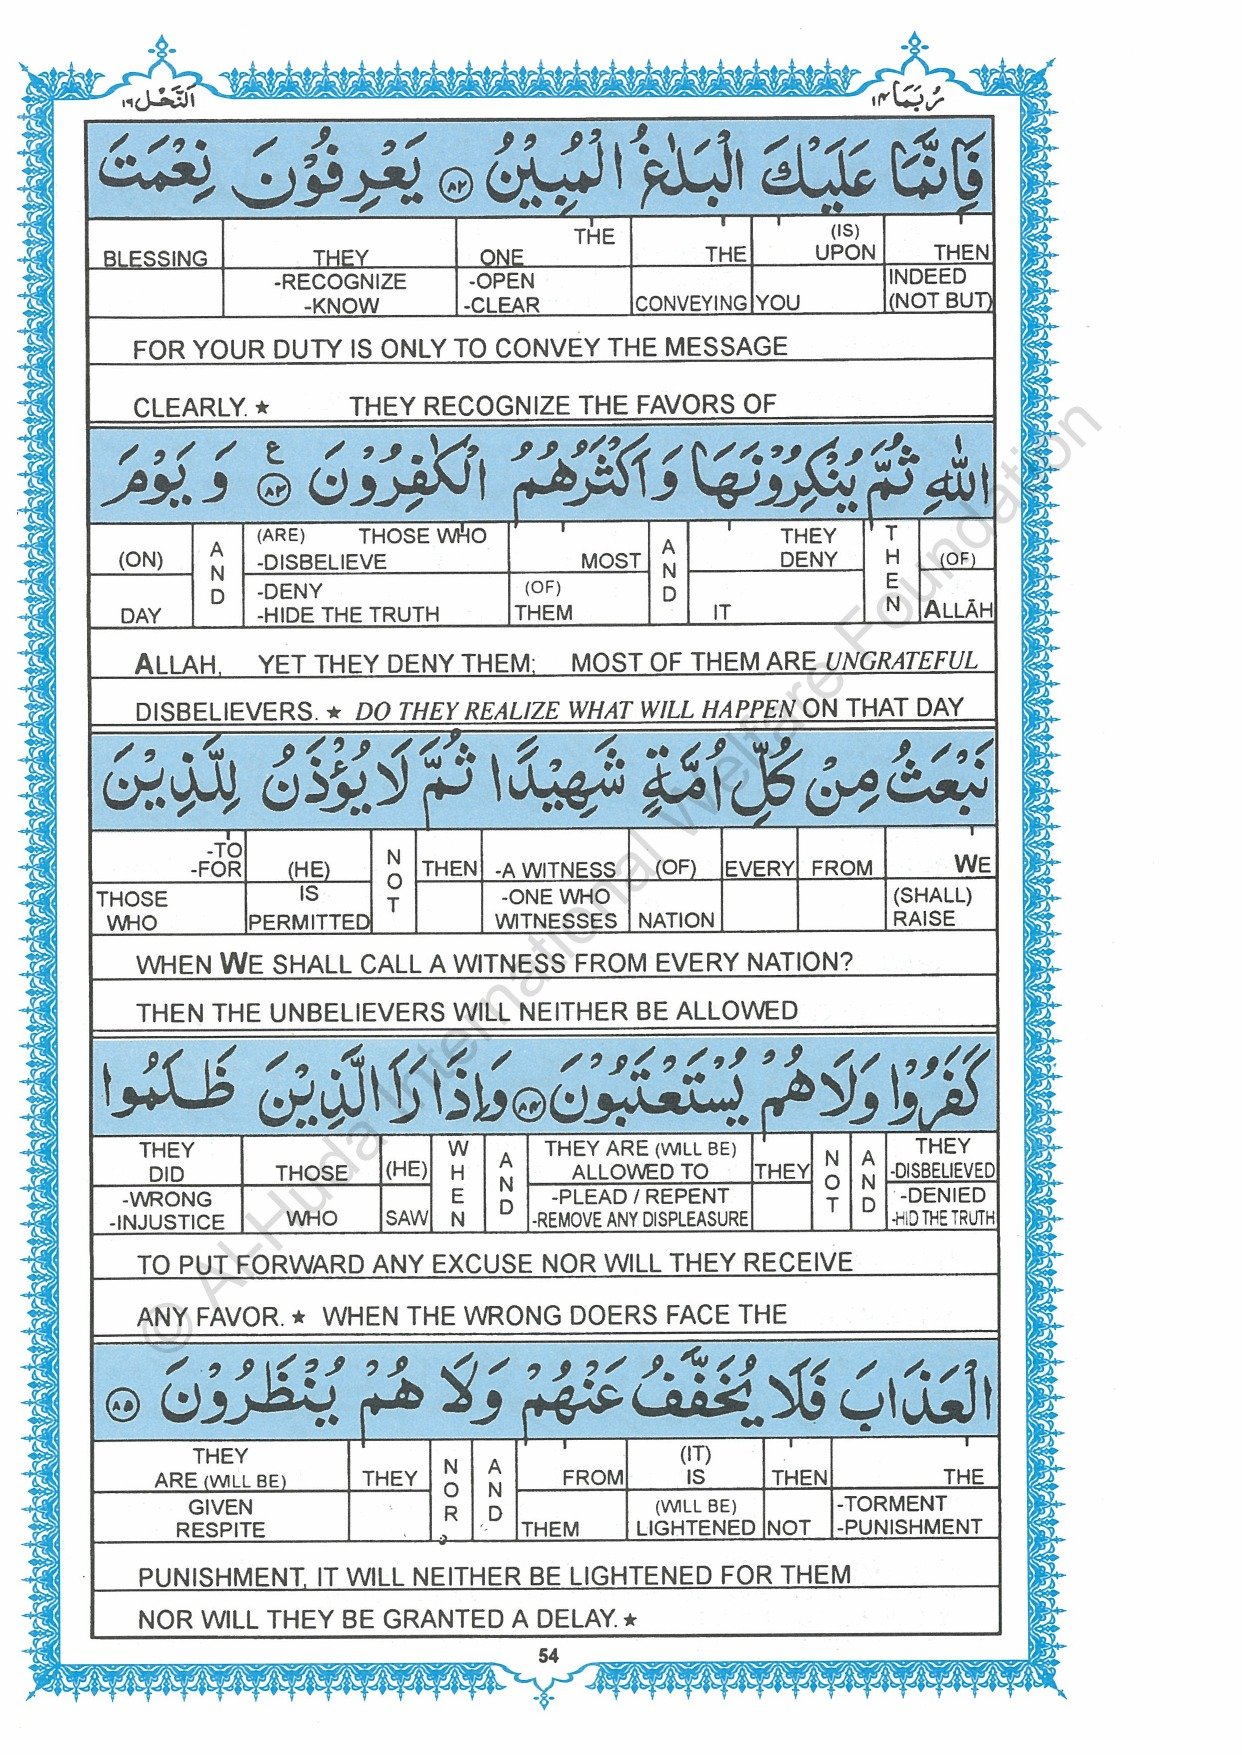 اَلنَّحْل ١٦
رُبَمَا ١٤
فَاِنَّمَا عَلَيْكَ الْبَلٰغُ الْمُبِيْنُ ٨٢ يَعْرِفُوْنَ نِعْمَتَ
BLESSING THEY ONE THE THE (IS) UPON THEN
-RECOGNIZE -KNOW -OPEN -CLEAR CONVEYING YOU INDEED (NOT BUT)
FOR YOUR DUTY IS ONLY TO CONVEY THE MESSAGE
CLEARLY. ★ THEY RECOGNIZE THE FAVORS OF
اللّٰهِ ثُمَّ يُنْكِرُوْنَهَا وَاَكْثَرُهُمُ الْكٰفِرُوْنَ ٨٣ ع وَ يَوْمَ
(ON) AND (ARE) THOSE WHO -DISBELIEVE MOST AND THEY DENY THEN (OF)
DAY -DENY -HIDE THE TRUTH (OF) THEM IT ALLĀH
ALLAH, YET THEY DENY THEM; MOST OF THEM ARE UNGRATEFUL
DISBELIEVERS. ★ DO THEY REALIZE WHAT WILL HAPPEN ON THAT DAY
نَبْعَثُ مِنْ كُلِّ اُمَّةٍ شَهِيْدًا ثُمَّ لَا يُؤْذَنُ لِلَّذِيْنَ
-TO -FOR (HE) NOT THEN -A WITNESS (OF) EVERY FROM WE
THOSE WHO IS PERMITTED -ONE WHO WITNESSES NATION (SHALL) RAISE
WHEN WE SHALL CALL A WITNESS FROM EVERY NATION?
THEN THE UNBELIEVERS WILL NEITHER BE ALLOWED
كَفَرُوْا وَلَا هُمْ يُسْتَعْتَبُوْنَ ٨٤ وَاِذَا رَاَ الَّذِيْنَ ظَلَمُوا
THEY DID THOSE (HE) WHEN AND THEY ARE (WILL BE) ALLOWED TO THEY NOT AND THEY -DISBELIEVED
-WRONG -INJUSTICE WHO SAW -PLEAD / REPENT -REMOVE ANY DISPLEASURE -DENIED -HID THE TRUTH
TO PUT FORWARD ANY EXCUSE NOR WILL THEY RECEIVE
ANY FAVOR. ★ WHEN THE WRONG DOERS FACE THE
الْعَذَابَ فَلَا يُخَفَّفُ عَنْهُمْ وَلَا هُمْ يُنْظَرُوْنَ ٨٥
THEY ARE (WILL BE) THEY NOR AND FROM (IT) IS THEN THE
GIVEN RESPITE THEM (WILL BE) LIGHTENED NOT -TORMENT -PUNISHMENT
PUNISHMENT, IT WILL NEITHER BE LIGHTENED FOR THEM
NOR WILL THEY BE GRANTED A DELAY. ★
54
© Al-Huda International Welfare Foundation